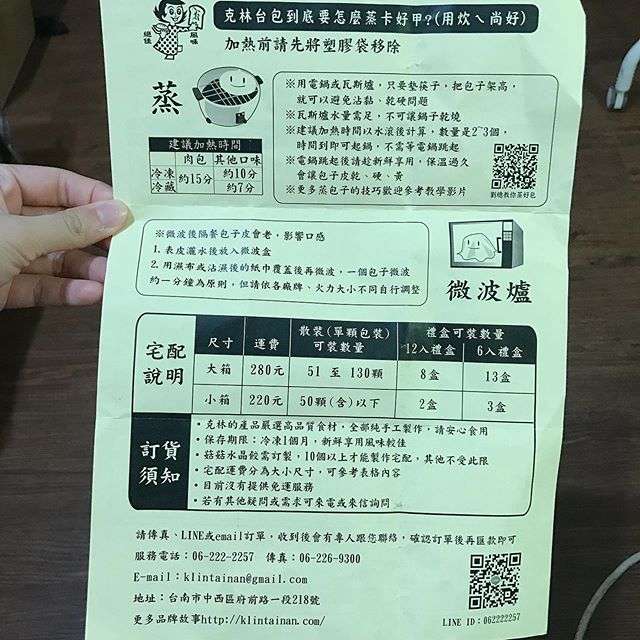 絕佳
風味
克林台包到底要怎麼蒸卡好呷?(用炊ㄟ尚好)
加熱前請先將塑膠袋移除
蒸
※用電鍋或瓦斯爐，只要墊筷子，把包子架高，
就可以避免沾黏、乾硬問題
※瓦斯爐水量需足，不可讓鍋子乾燒
※建議加熱時間以水滾後計算，數量是2~3個，
時間到即可起鍋，不需等電鍋跳起
※電鍋跳起後請趁新鮮享用，保溫過久
會讓包子皮乾、硬、黃
※更多蒸包子的技巧歡迎參考教學影片
劉總教你蒸好包
建議加熱時間
肉包 其他口味
冷凍 約15分 約10分
冷藏 約7分
※微波後隔餐包子皮會老，影響口感
1. 表皮灑水後放入微波盒
2. 用濕布或沾濕後的紙巾覆蓋後再微波，一個包子微波
約一分鐘為原則，但請依各廠牌、火力大小不同自行調整
微波爐
宅配說明
尺寸 運費 散裝(單顆包裝)可裝數量 禮盒可裝數量
12入禮盒 6入禮盒
大箱 280元 51 至 130顆 8盒 13盒
小箱 220元 50顆(含)以下 2盒 3盒
訂貨須知
・克林的產品嚴選高品質食材，全部純手工製作，請安心食用
・保存期限：冷凍1個月，新鮮享用風味較佳
・菇菇水晶餃需訂製，10個以上才能製作宅配，其他不受此限
・宅配運費分為大小尺寸，可參考表格內容
・目前沒有提供免運服務
・若有其他疑問或需求可來電或來信詢問
請傳真、LINE或email訂單，收到後會有專人跟您聯絡，確認訂單後再匯款即可
服務電話：06-222-2257 傳真：06-226-9300
E-mail：klintainan@gmail.com
地址：台南市中西區府前路一段218號
更多品牌故事http://klintainan.com/
LINE ID：062222257